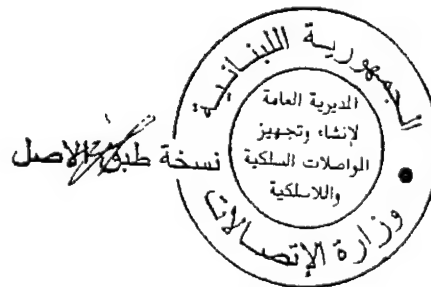 الجمهورية اللبنانية
المديرية العامة
لإنشاء وتجهيز
المواصلات السلكية
واللاسلكية
وزارة الإتصالات
نسخة طبق الاصل